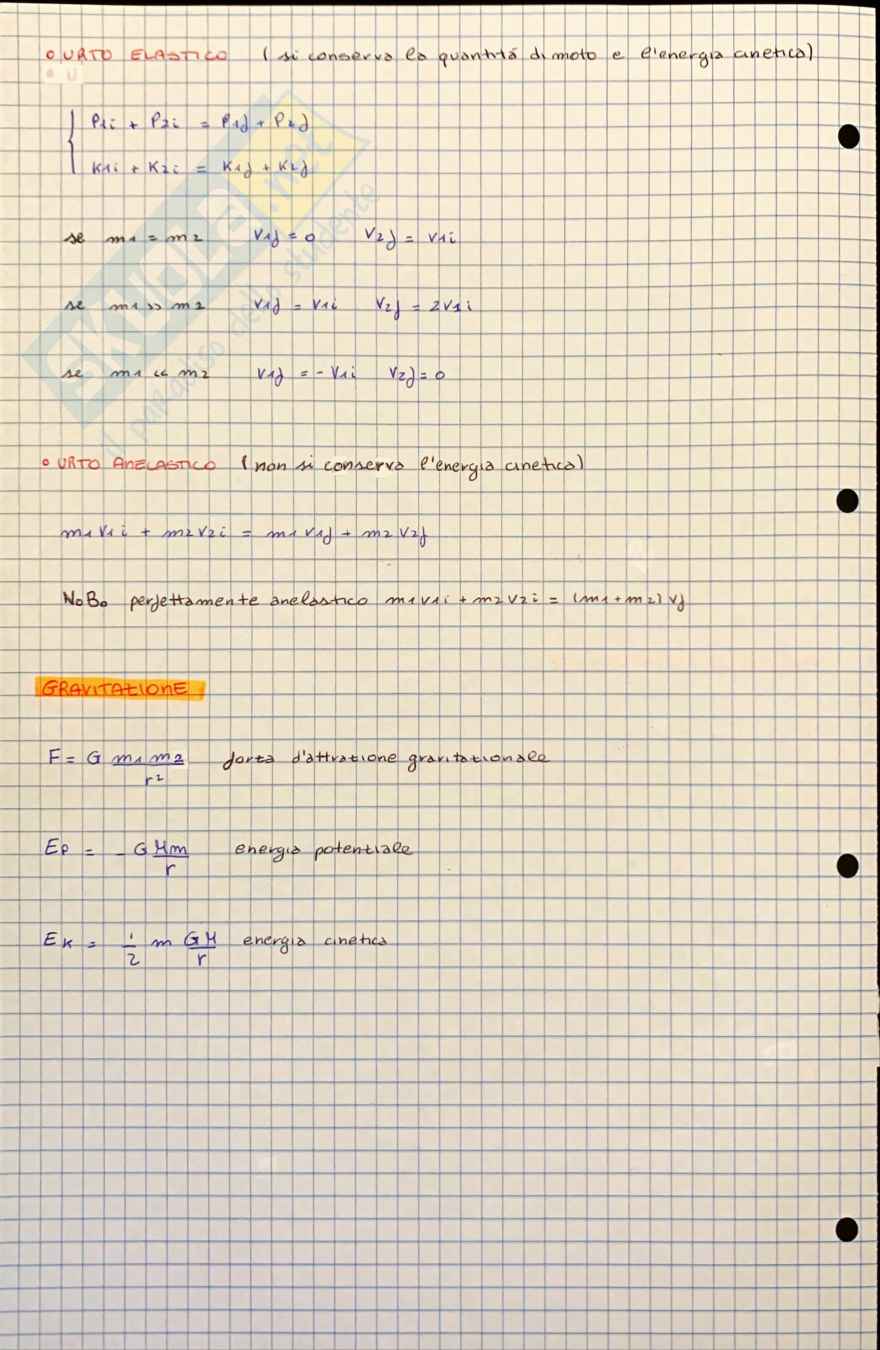 • URTO ELASTICO (si conserva la quantità di moto e l'energia cinetica)
P1i + P2i = P1f + P2f
K1i + K2i = K1f + K2f
se m1 = m2 V1f = 0 V2f = V1i
se m1 >> m2 V1f = V1i V2f = 2V1i
se m1 << m2 V1f = - V1i V2f = 0
• URTO ANELASTICO (non si conserva l'energia cinetica)
m1V1i + m2V2i = m1V1f + m2V2f
N.B. perfettamente anelastico m1V1i + m2V2i = (m1+m2) Vf
GRAVITAZIONE
F = G m1 m2 / r² forza d'attrazione gravitazionale
Ep = - G Mm / r energia potenziale
Ek = 1/2 m GM / r energia cinetica
SKUOLA.net
il paradiso dello studente